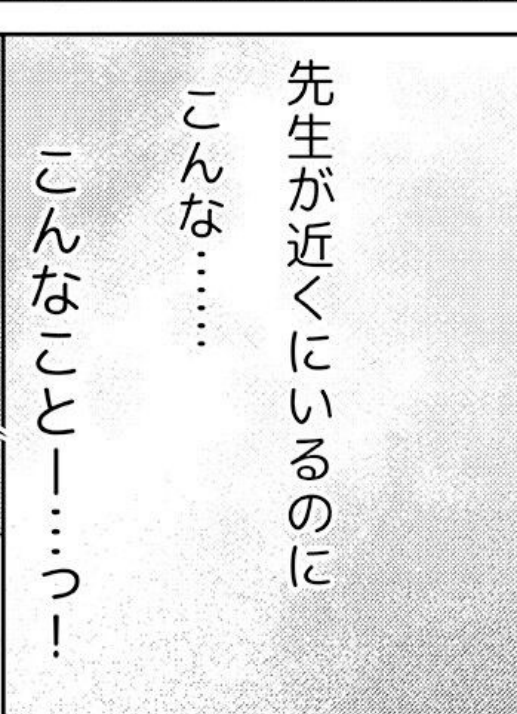 先生が近くにいるのに
こんな……
こんなことー…っ！